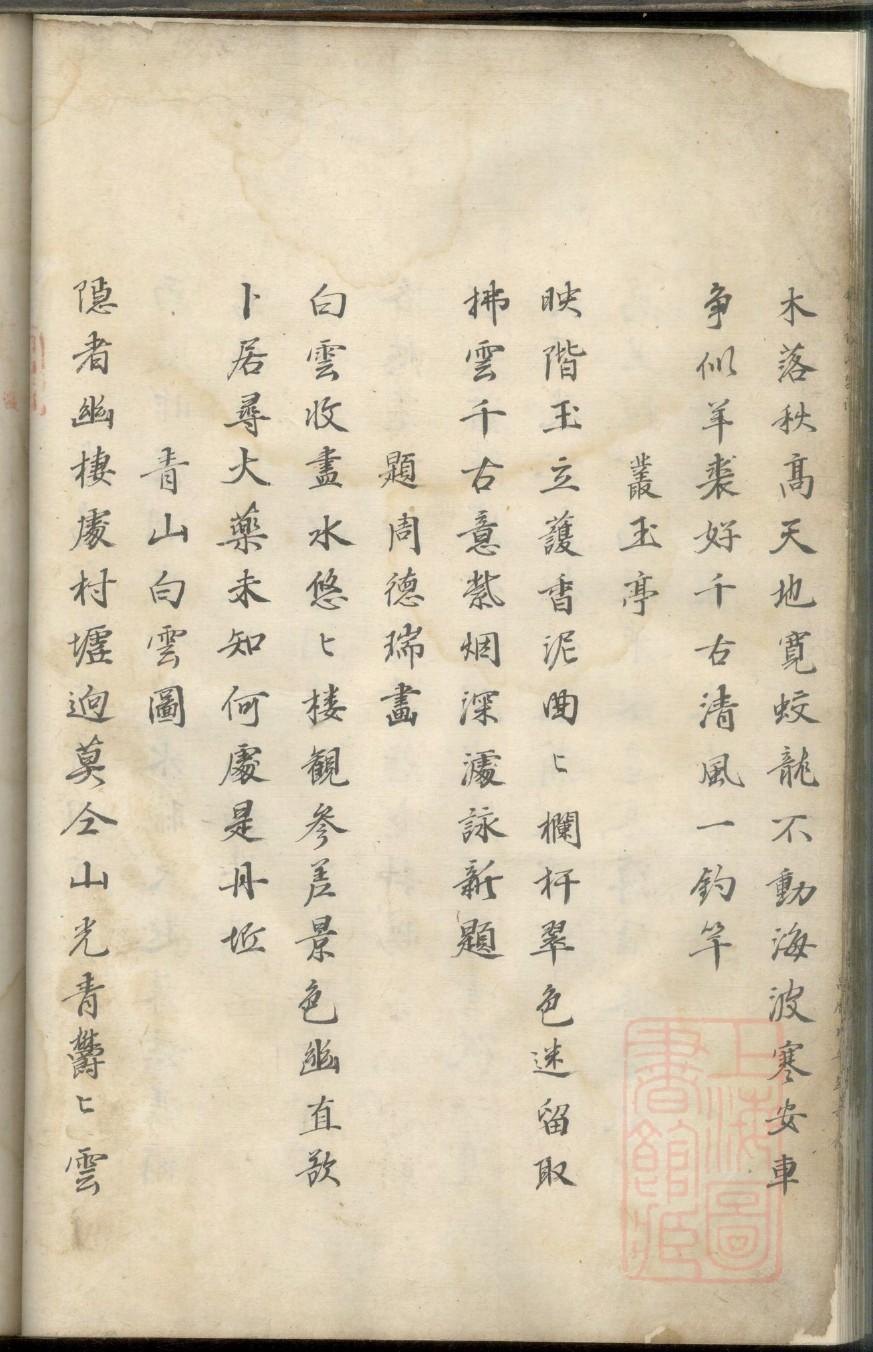 木落秋髙天地寛蛟龍不動海波寒安車
争似羊裘好千古清風一釣竿
叢玉亭
映階玉立護香泥曲〻欄杆翠色迷留取
拂雲千古意紫烟深濾詠新題
題周德瑞畫
白雲收盡水悠〻楼観參差景色幽直欲
卜居尋大藥未知何處是丹坵
青山白雲圖
隠者幽棲處村墟逈莫仝山光青欝〻雲
上海圖書館藏